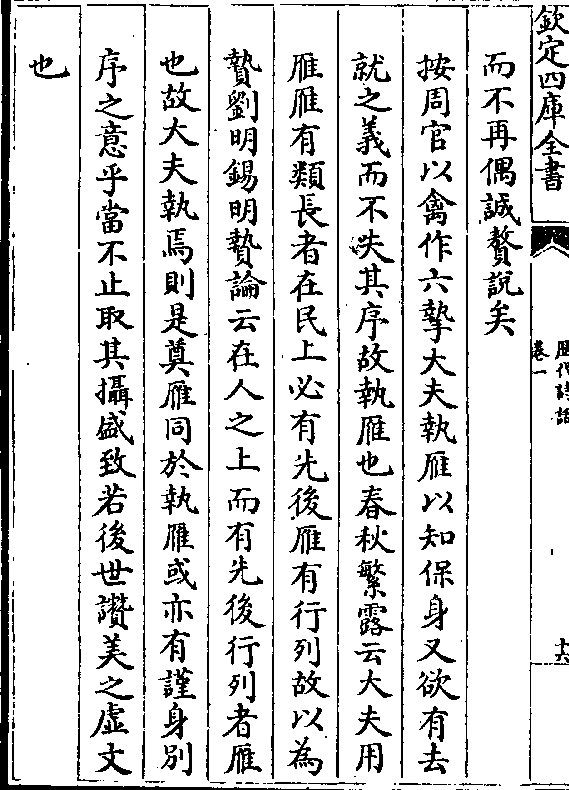 欽定四庫全書
歷代詩話
卷一
十六
而不再偶誠贅說矣
按周官以禽作六摯大夫執雁以知保身又欲有去
就之義而不失其序故執雁也春秋繁露云大夫用
雁雁有類長者在民上必有先後雁有行列故以為
贄劉明錫明贄論云在人之上而有先後行列者雁
也故大夫執焉則是奠雁同於執雁或亦有謹身別
序之意乎當不止取其攝盛致若後世讚美之虛文
也